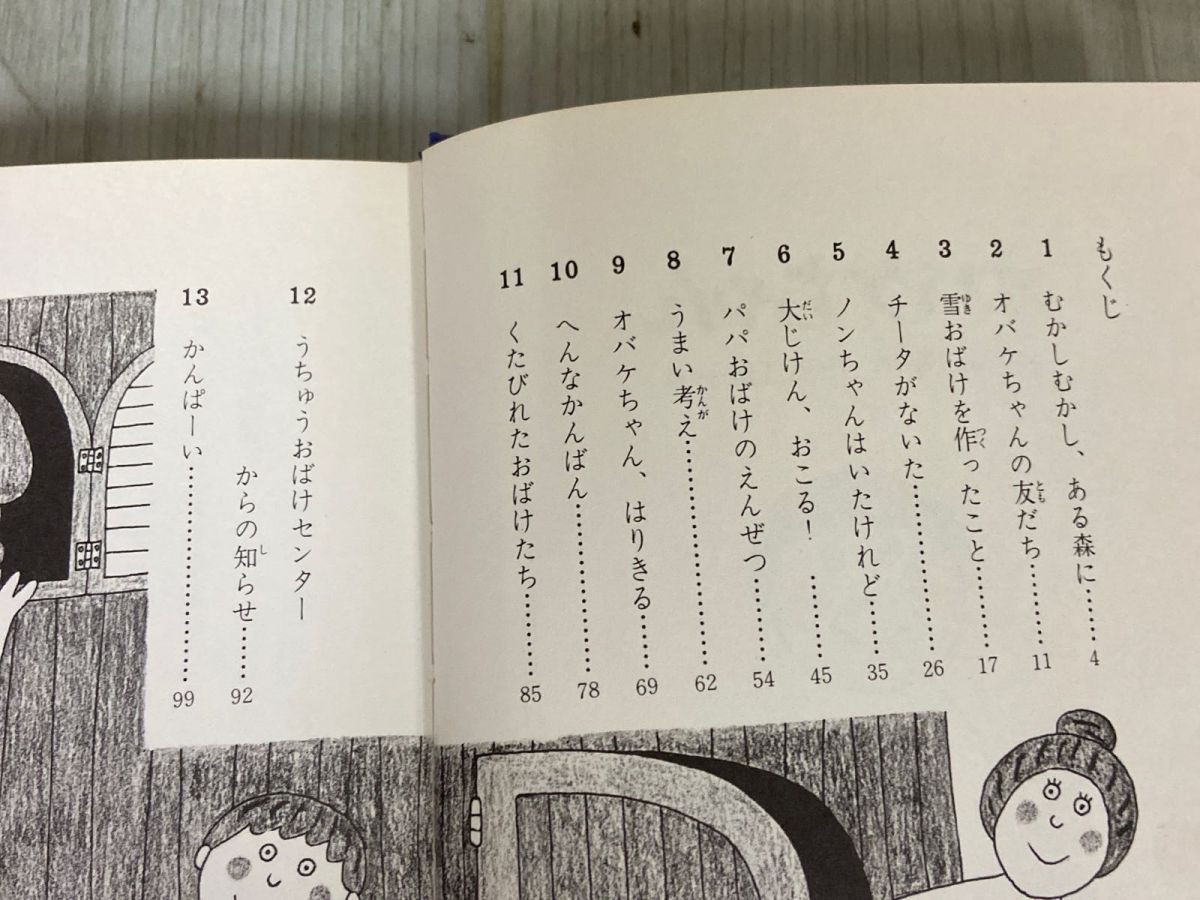 もくじ
1 むかしむかし、ある森に……4
2 オバケちゃんの友だち……11
3 雪おばけを作ったこと……17
4 チータがないた……26
5 ノンちゃんはいたけれど……35
6 大じけん、おこる！……45
7 パパおばけのえんぜつ……54
8 うまい考え……62
9 オバケちゃん、はりきる……69
10 へんなかんばん……78
11 くたびれたおばけたち……85
12 うちゅうおばけセンター
からの知らせ……92
13 かんぱーい……99